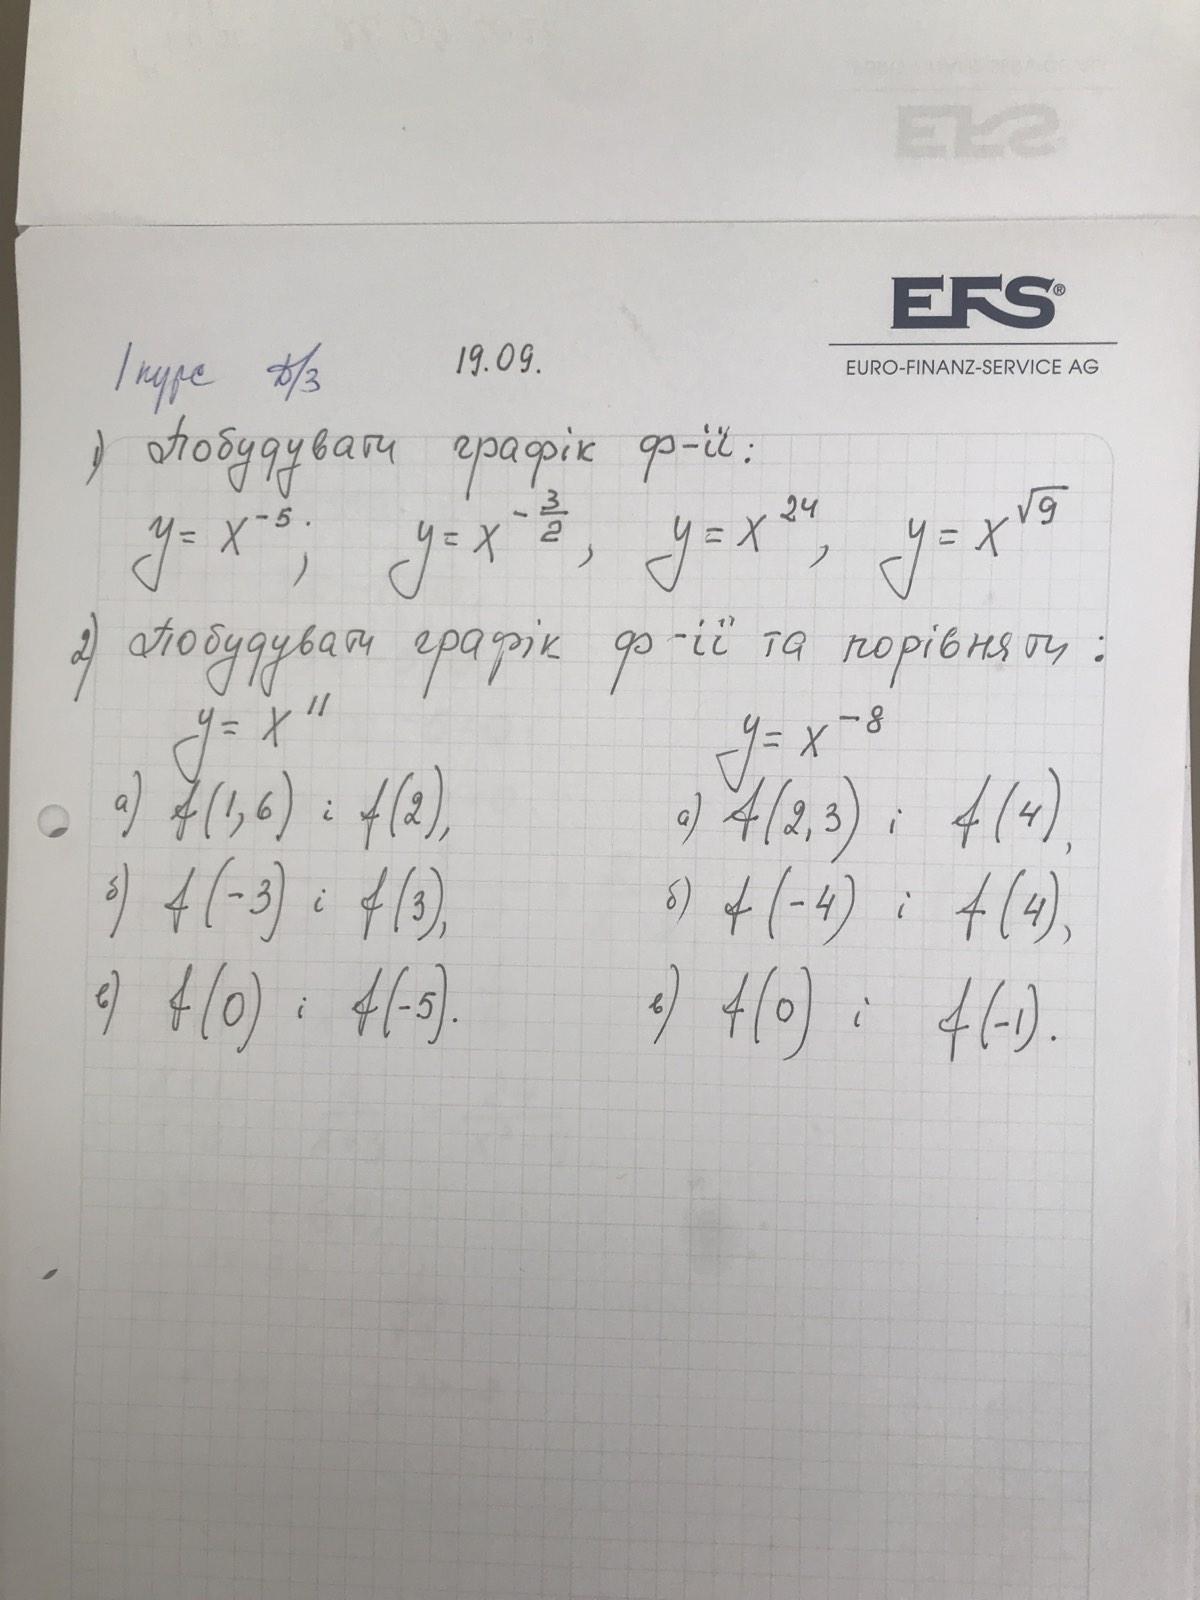 EFS®
EURO-FINANZ-SERVICE AG
1 курс Д/З 19.09.
1) Побудувати графік ф-ії:
y = x^{-5}; y = x^{-\frac{3}{2}}, y = x^{24}, y = x^{\sqrt{9}}
2) Побудувати графік ф-ії та порівняти:
y = x^{11} y = x^{-8}
а) f(1,6) і f(2), а) f(2,3) і f(4),
б) f(-3) і f(3), б) f(-4) і f(4),
в) f(0) і f(-5). в) f(0) і f(-1).